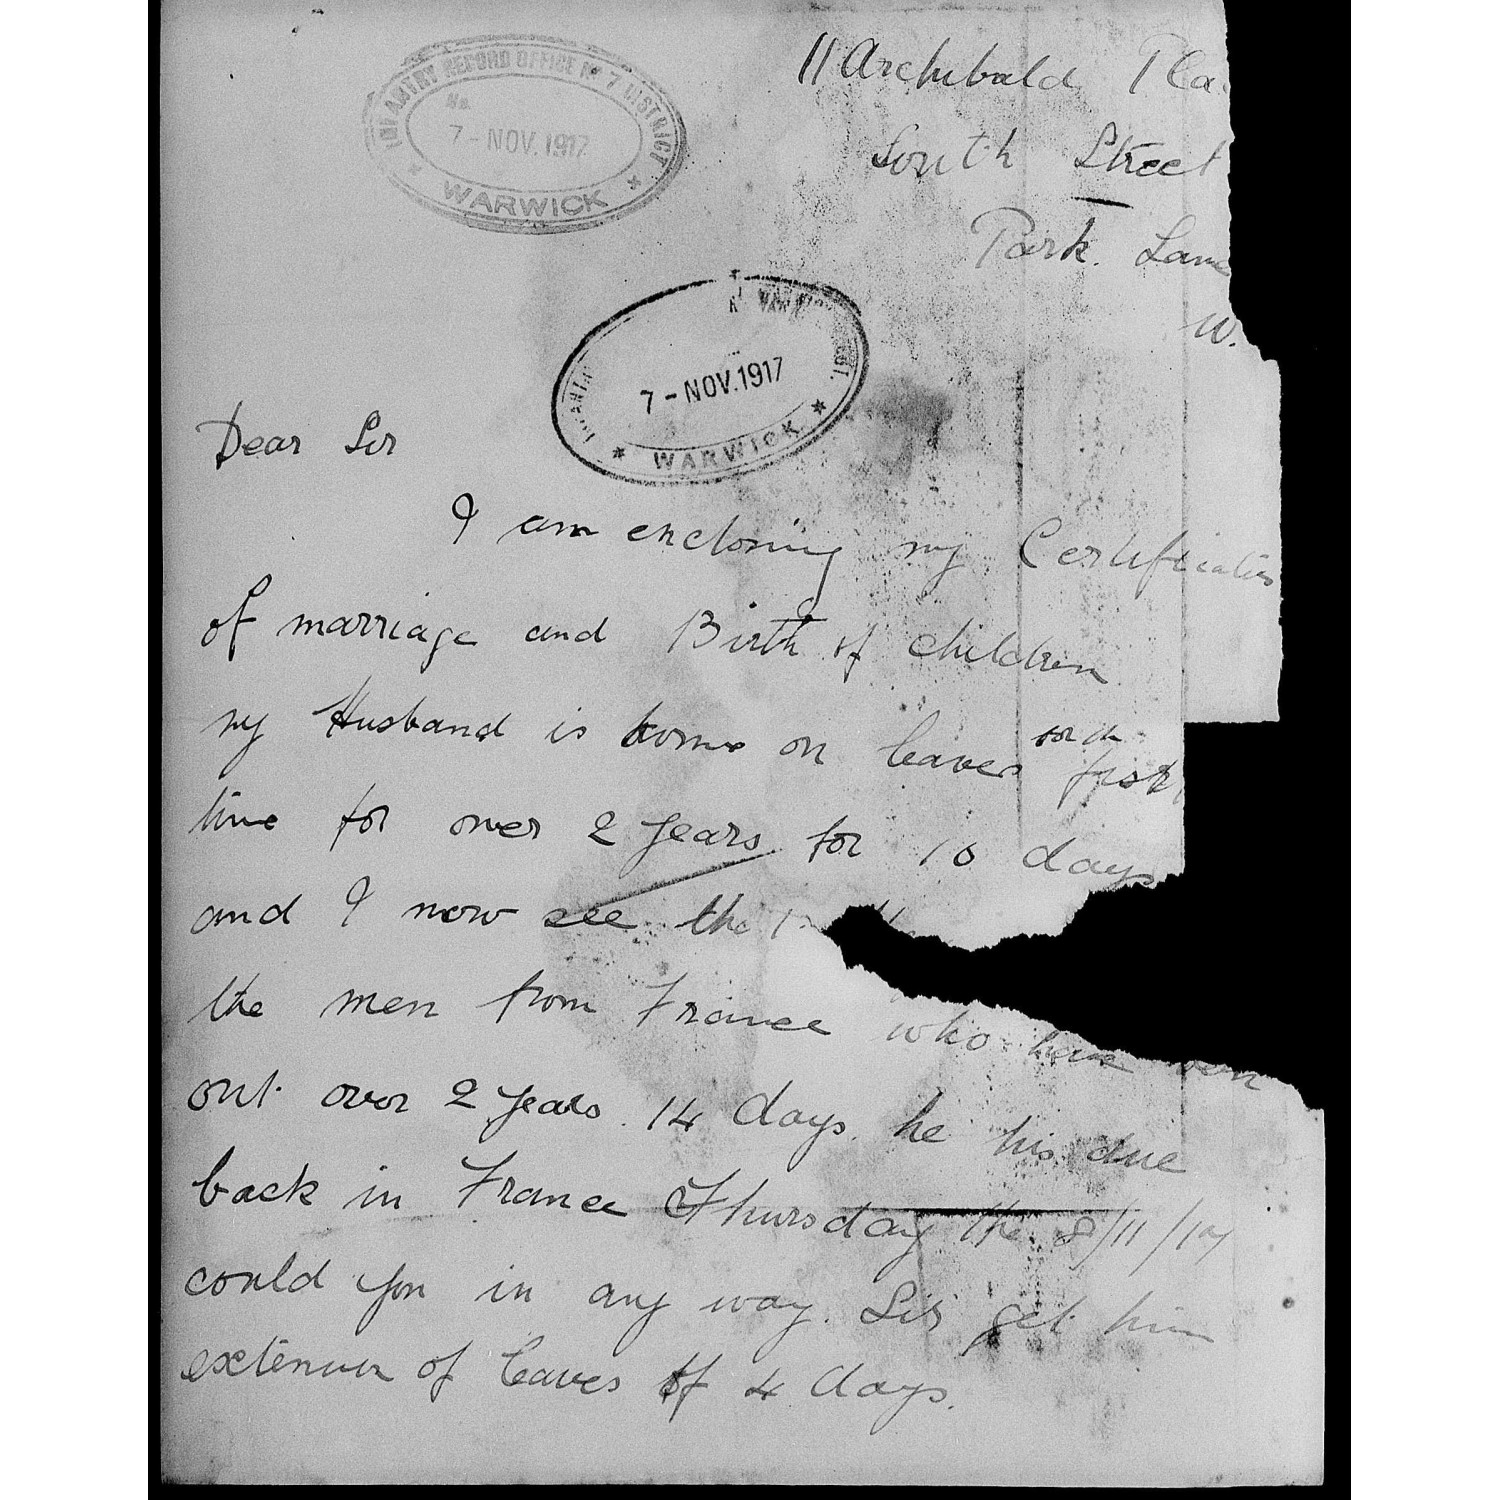 INFANTRY RECORD OFFICE No 7 DISTRICT
No.
7 - NOV. 1917
WARWICK
11 Archibald Pla
South Street
Park. Lane
W.
7 - NOV. 1917
WARWICK
Dear Sir
I am enclosing my Certificates
of marriage and Birth of children
my Husband is home on leave for the first
time for over 2 years for 10 days
and I now see the
the men from France who have been
out over 2 years. 14 days. he his due
back in France Thursday the 8/11/17
could you in any way. Sir get him
of leave of 4 days.